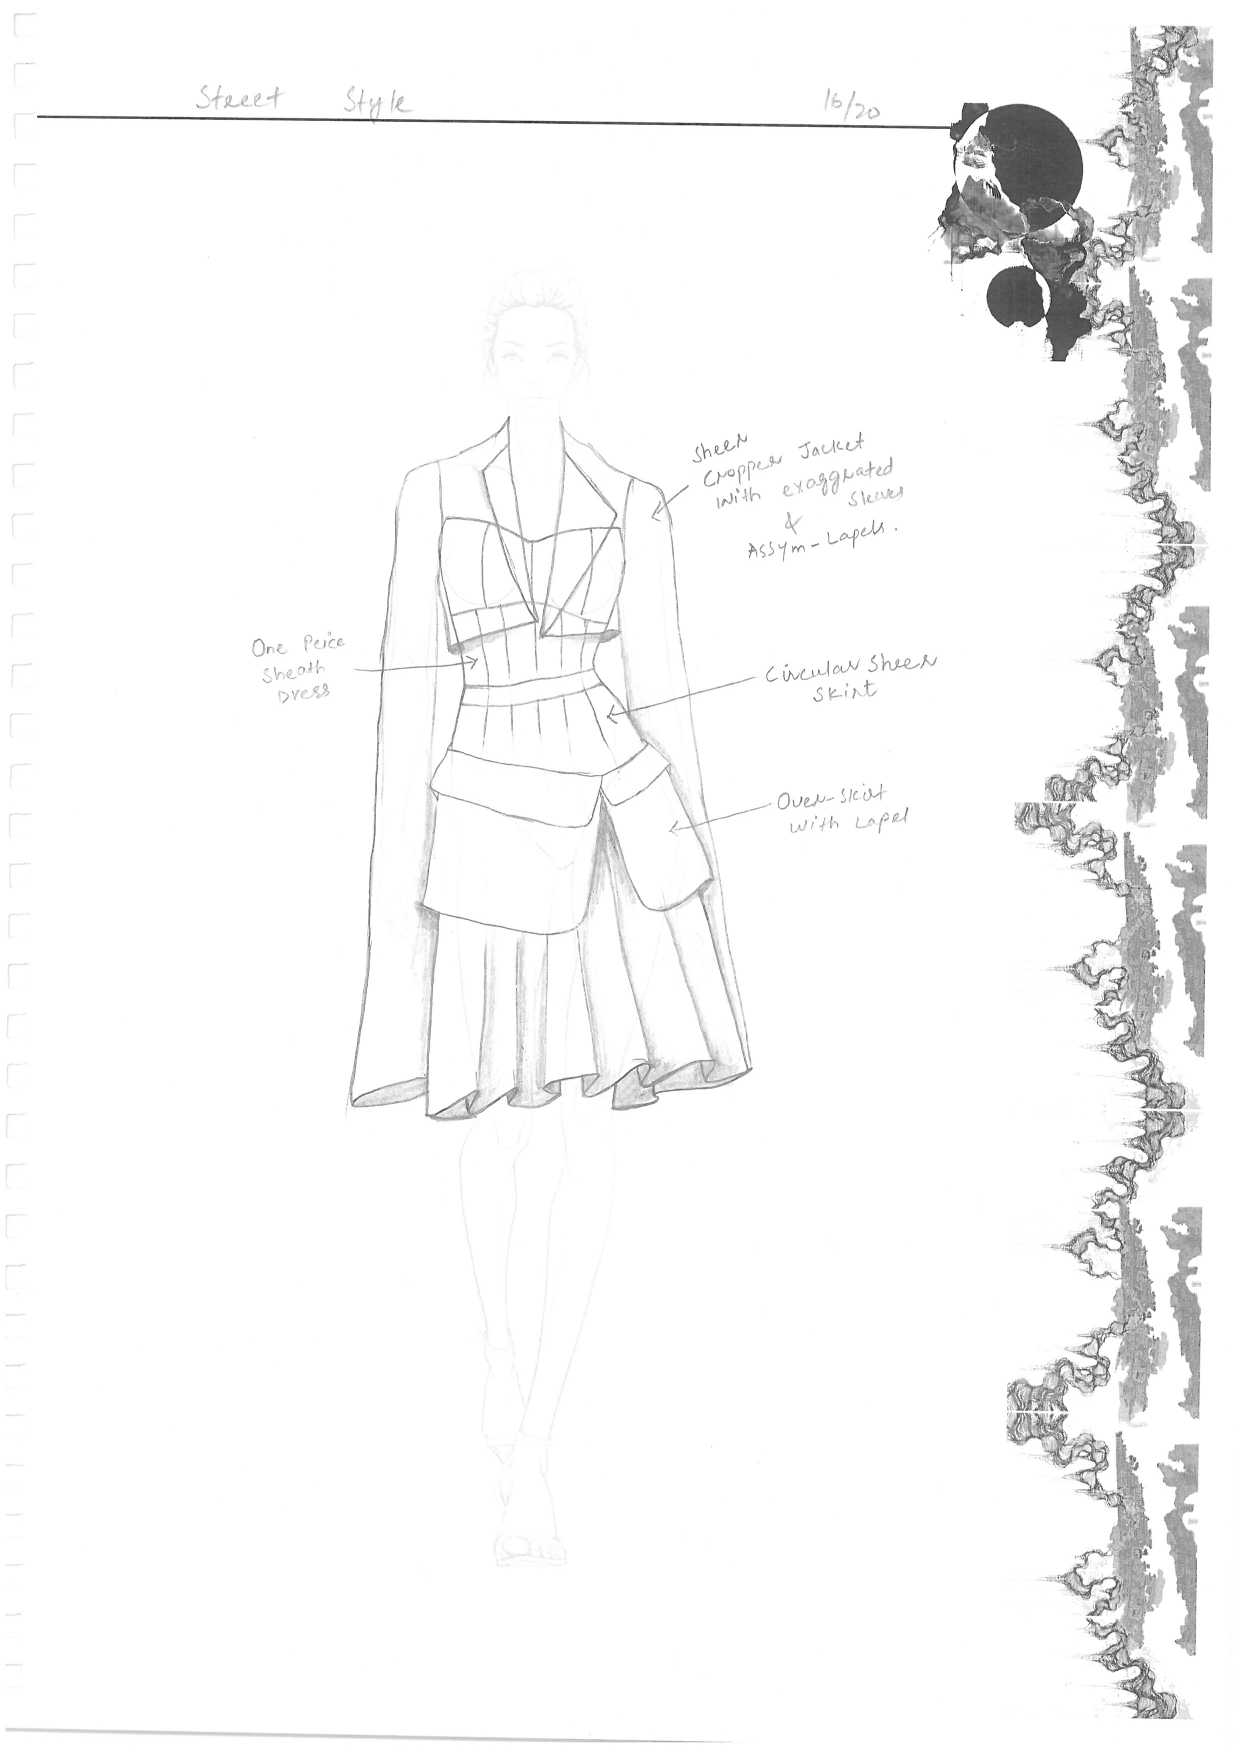 Street Style 16/20
Sheer
Cropper Jacket
With exaggrated
Sleeves
&
Assym-Lapels.
One Peice
Sheath
Dress
Circular Sheer
Skirt
Over-Skirt
With Lapel